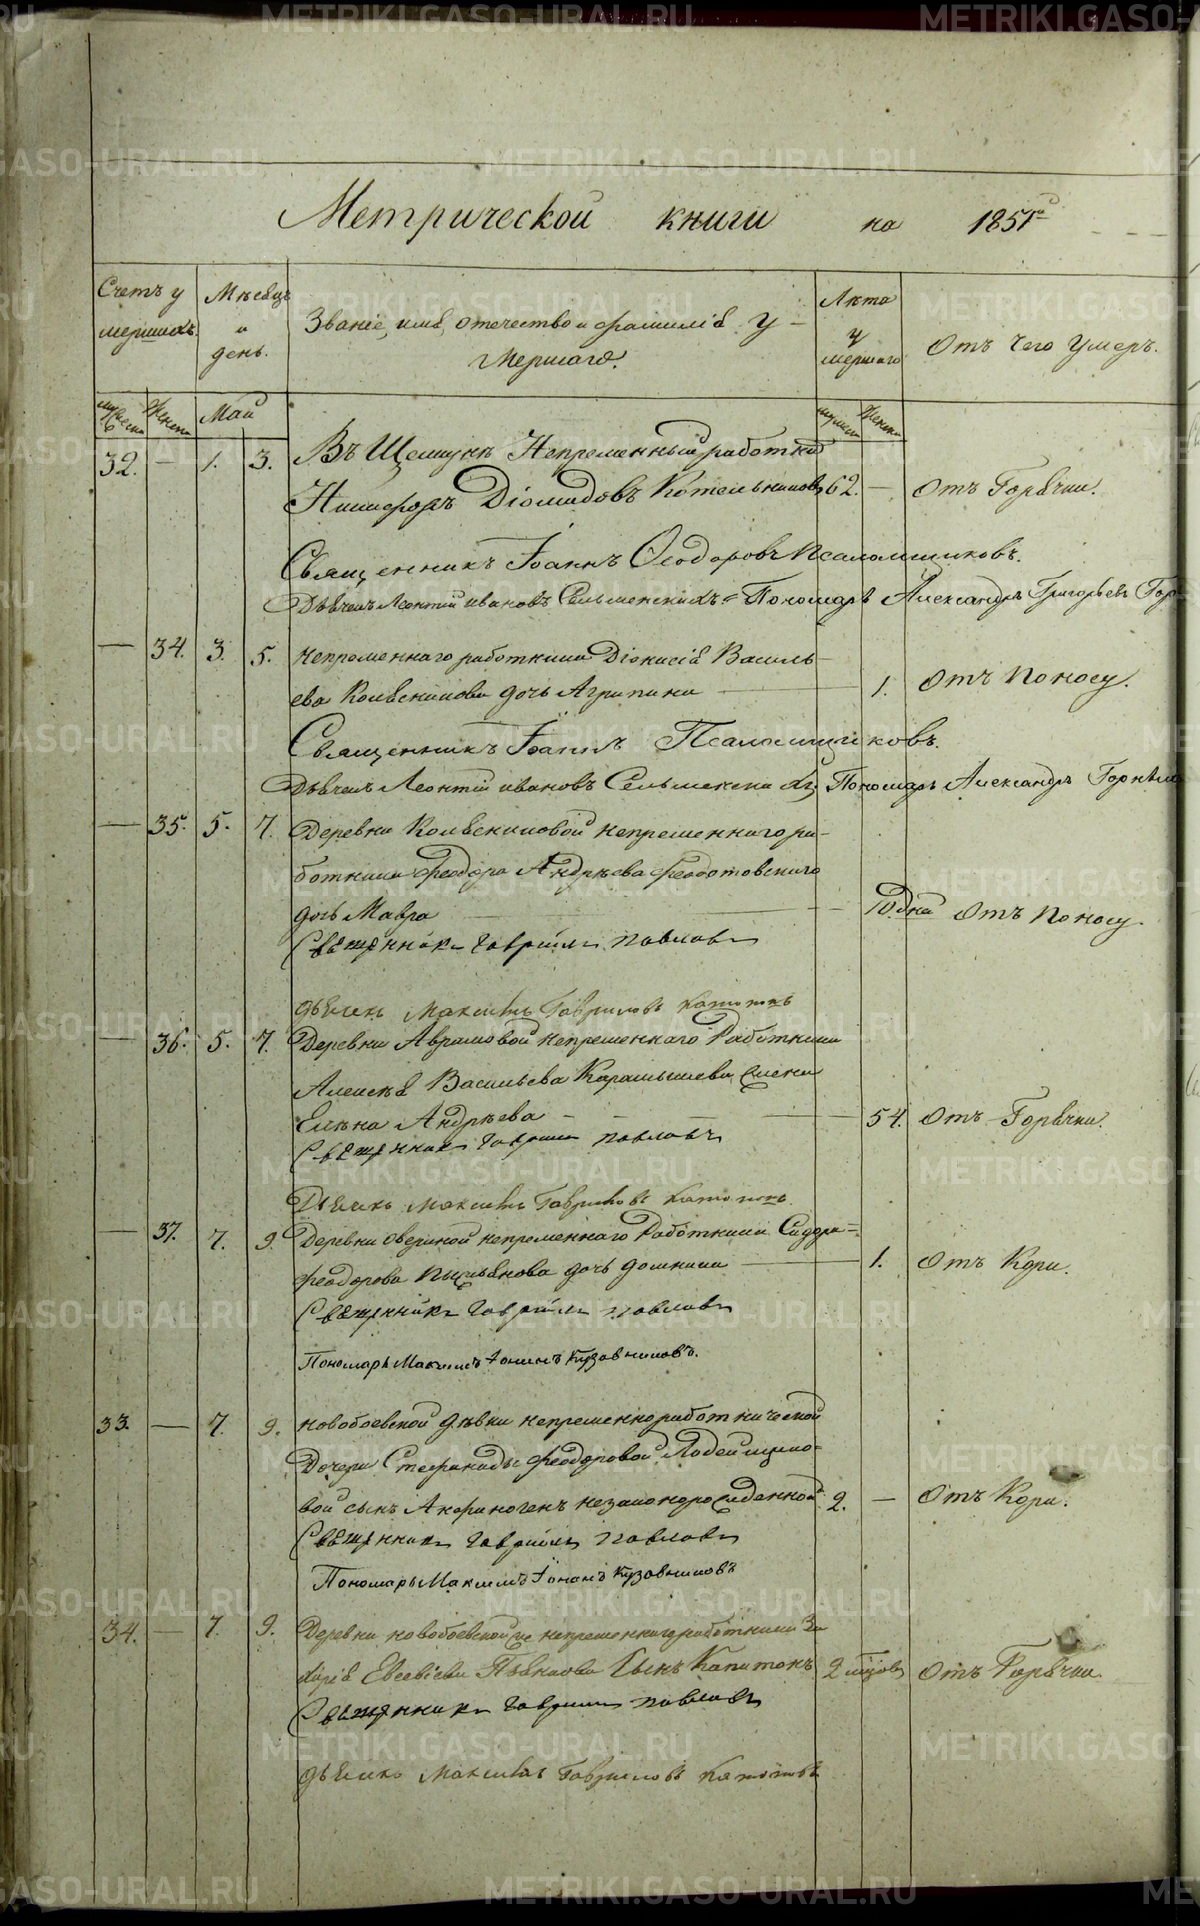 Метрической книги на 1851г
Счетъ умершихъ
Мѣсяцъ и день.
Званіе, имя, отечество и фамилія умершаго.
Лѣта умершаго
Отъ чего умеръ.
Май
32. — 1. 3. Въ Непременный работник
Никифоръ Діомидовъ Котельниковъ 62. — Отъ Горячки.
Священникъ Іоаннъ Ѳеодоровъ Псаломщиковъ.
Дьячекъ Леонтій Ивановъ Пономарь Александръ Григорьевъ
— 34. 3. 5. Непременнаго работника Діонисія Василь-
ева дочь Агрипина — 1. Отъ Поносу.
Священникъ Іоаннъ Псаломщиковъ.
Дьячекъ Леонтій Ивановъ Пономарь Александръ
— 35. 5. 7. Деревни непременнаго ра-
ботника Феодора Андрѣева Феодотовскаго
дочь Мавра — 10. дня Отъ Поносу.
Священникъ Гавріилъ Павловъ
дьячекъ Максимъ Гавриловъ
— 36. 5. 7. Деревни Аврамовой непременнаго Работника
Алексѣя Васильева Карамышева жена
Елена Андрѣева — 54. Отъ Горячки.
Священникъ Гавріилъ Павловъ
Дьячекъ Максимъ Гавриловъ
— 37. 7. 9. Деревни непременнаго Работника Сидора
Феодорова дочь Домника — 1. Отъ Кори.
Священникъ Гавріилъ Павловъ
Пономарь Максимъ Іонинъ Кузовниковъ.
33. — 7. 9. Новобоевской дѣвки непременноработнической
Дочери Стефаниды Феодоровой
вой сынъ Анфиногенъ незаконорожденной 2. — Отъ Кори.
Священникъ Гавріилъ Павловъ
Пономарь Максимъ Іонинъ Кузовниковъ
34. — 7. 9. Деревни Новобоевской непременнаго работника За
харія Евсевіева Пьянкова Сынъ Капитонъ 2 Отъ Горячки.
Священникъ Гавріилъ Павловъ
дьячекъ Максимъ Гавриловъ
METRIKI.GASO-URAL.RU